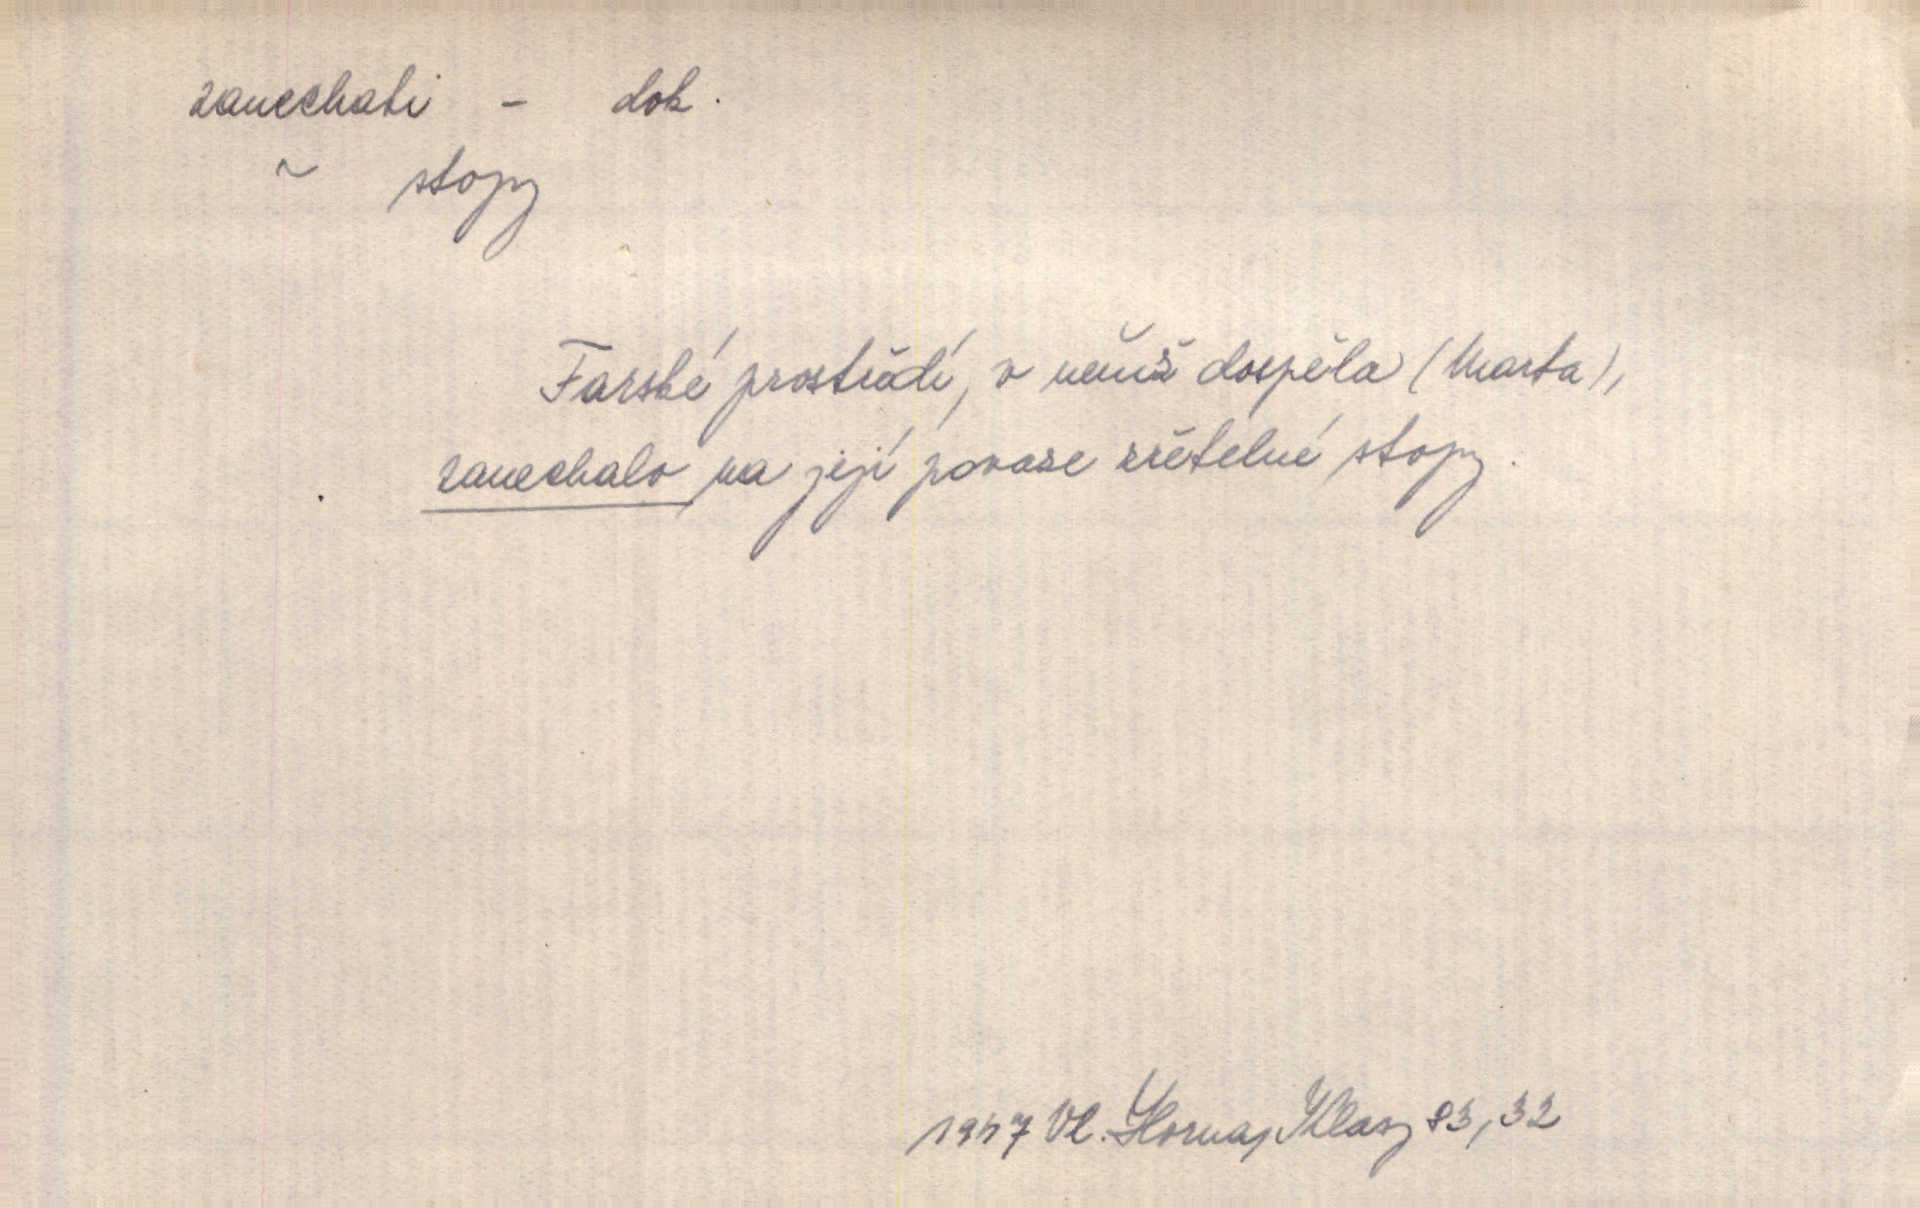 zanechati - dok.
~ stopy
Farské prostředí, v němž dospěla (Marta),
zanechalo na její povaze zřetelné stopy.
1947 Vl. Horna, Hlasy 83, 32